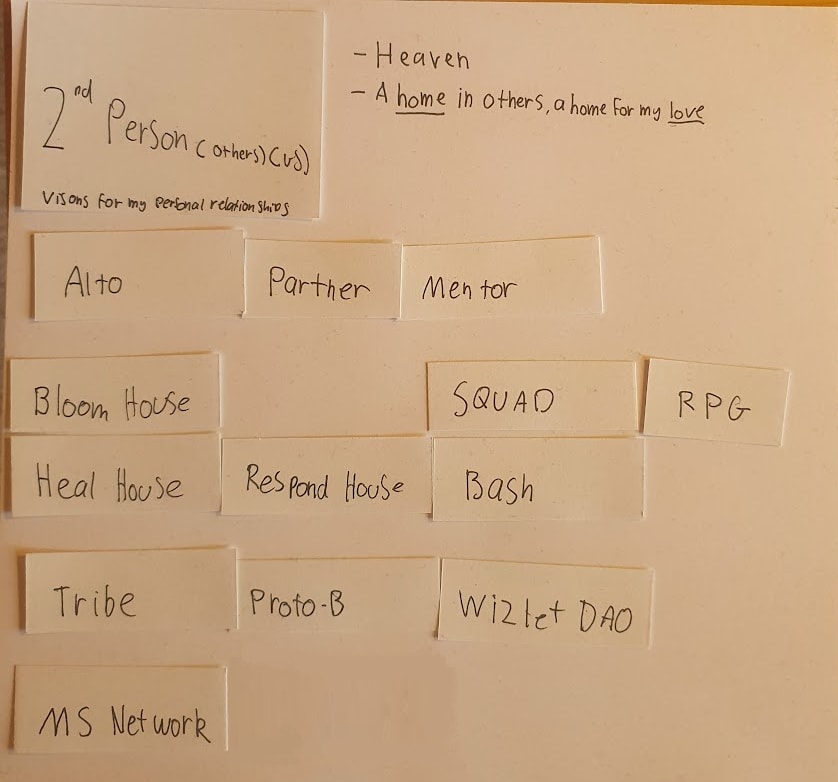 2nd Person (others) (us)
Visons for my personal relationships
- Heaven
- A home in others, a home for my love
Alto
Parther
Mentor
Bloom House
SQUAD
RPG
Heal House
Respond House
Bash
Tribe
Proto-B
Wizlet DAO
MS Network